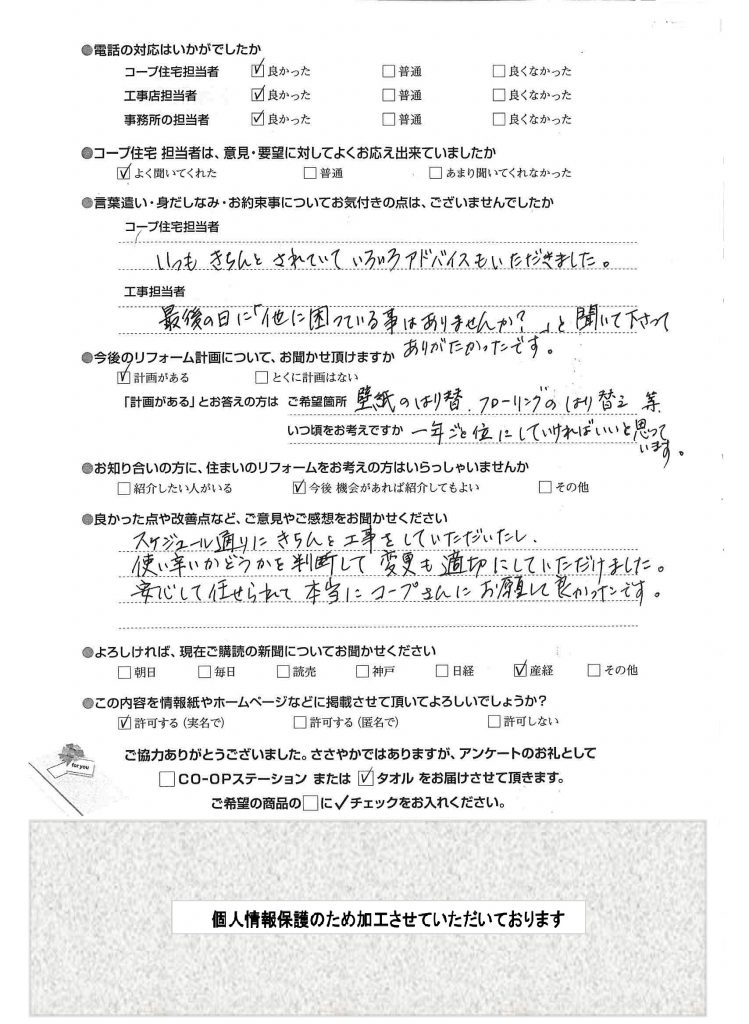 ●電話の対応はいかがでしたか
コープ住宅担当者 ☑良かった □普通 □良くなかった
工事店担当者 ☑良かった □普通 □良くなかった
事務所の担当者 ☑良かった □普通 □良くなかった
●コープ住宅 担当者は、意見・要望に対してよくお応え出来ていましたか
☑よく聞いてくれた □普通 □あまり聞いてくれなかった
●言葉遣い・身だしなみ・お約束事についてお気付きの点は、ございませんでしたか
コープ住宅担当者
いつも きちんと されていて いろいろアドバイスもいただきました。
工事担当者
最後の日に「他に困っている事はありませんか?」と聞いて下さって
ありがたかったです。
●今後のリフォーム計画について、お聞かせ頂けますか
☑計画がある □とくに計画はない
「計画がある」とお答えの方は ご希望箇所 壁紙のはり替、フローリングのはり替え 等
いつ頃をお考えですか 一年ごと位にしていければいいと思って
います。
●お知り合いの方に、住まいのリフォームをお考えの方はいらっしゃいませんか
□紹介したい人がいる ☑今後 機会があれば紹介してもよい □その他
●良かった点や改善点など、ご意見やご感想をお聞かせください
スケジュール通りにきちんと工事をしていただいたし、
使い辛いかどうかを判断して変更も適切にしていただけました。
安心して任せられて本当にコープさんにお願して良かったです。
●よろしければ、現在ご購読の新聞についてお聞かせください
□朝日 □毎日 □読売 □神戸 □日経 ☑産経 □その他
●この内容を情報紙やホームページなどに掲載させて頂いてよろしいでしょうか?
☑許可する(実名で) □許可する(匿名で) □許可しない
for you
ご協力ありがとうございました。ささやかではありますが、アンケートのお礼として
□CO-OPステーション または ☑タオル をお届けさせて頂きます。
ご希望の商品の□に✓チェックをお入れください。
個人情報保護のため加工させていただいております